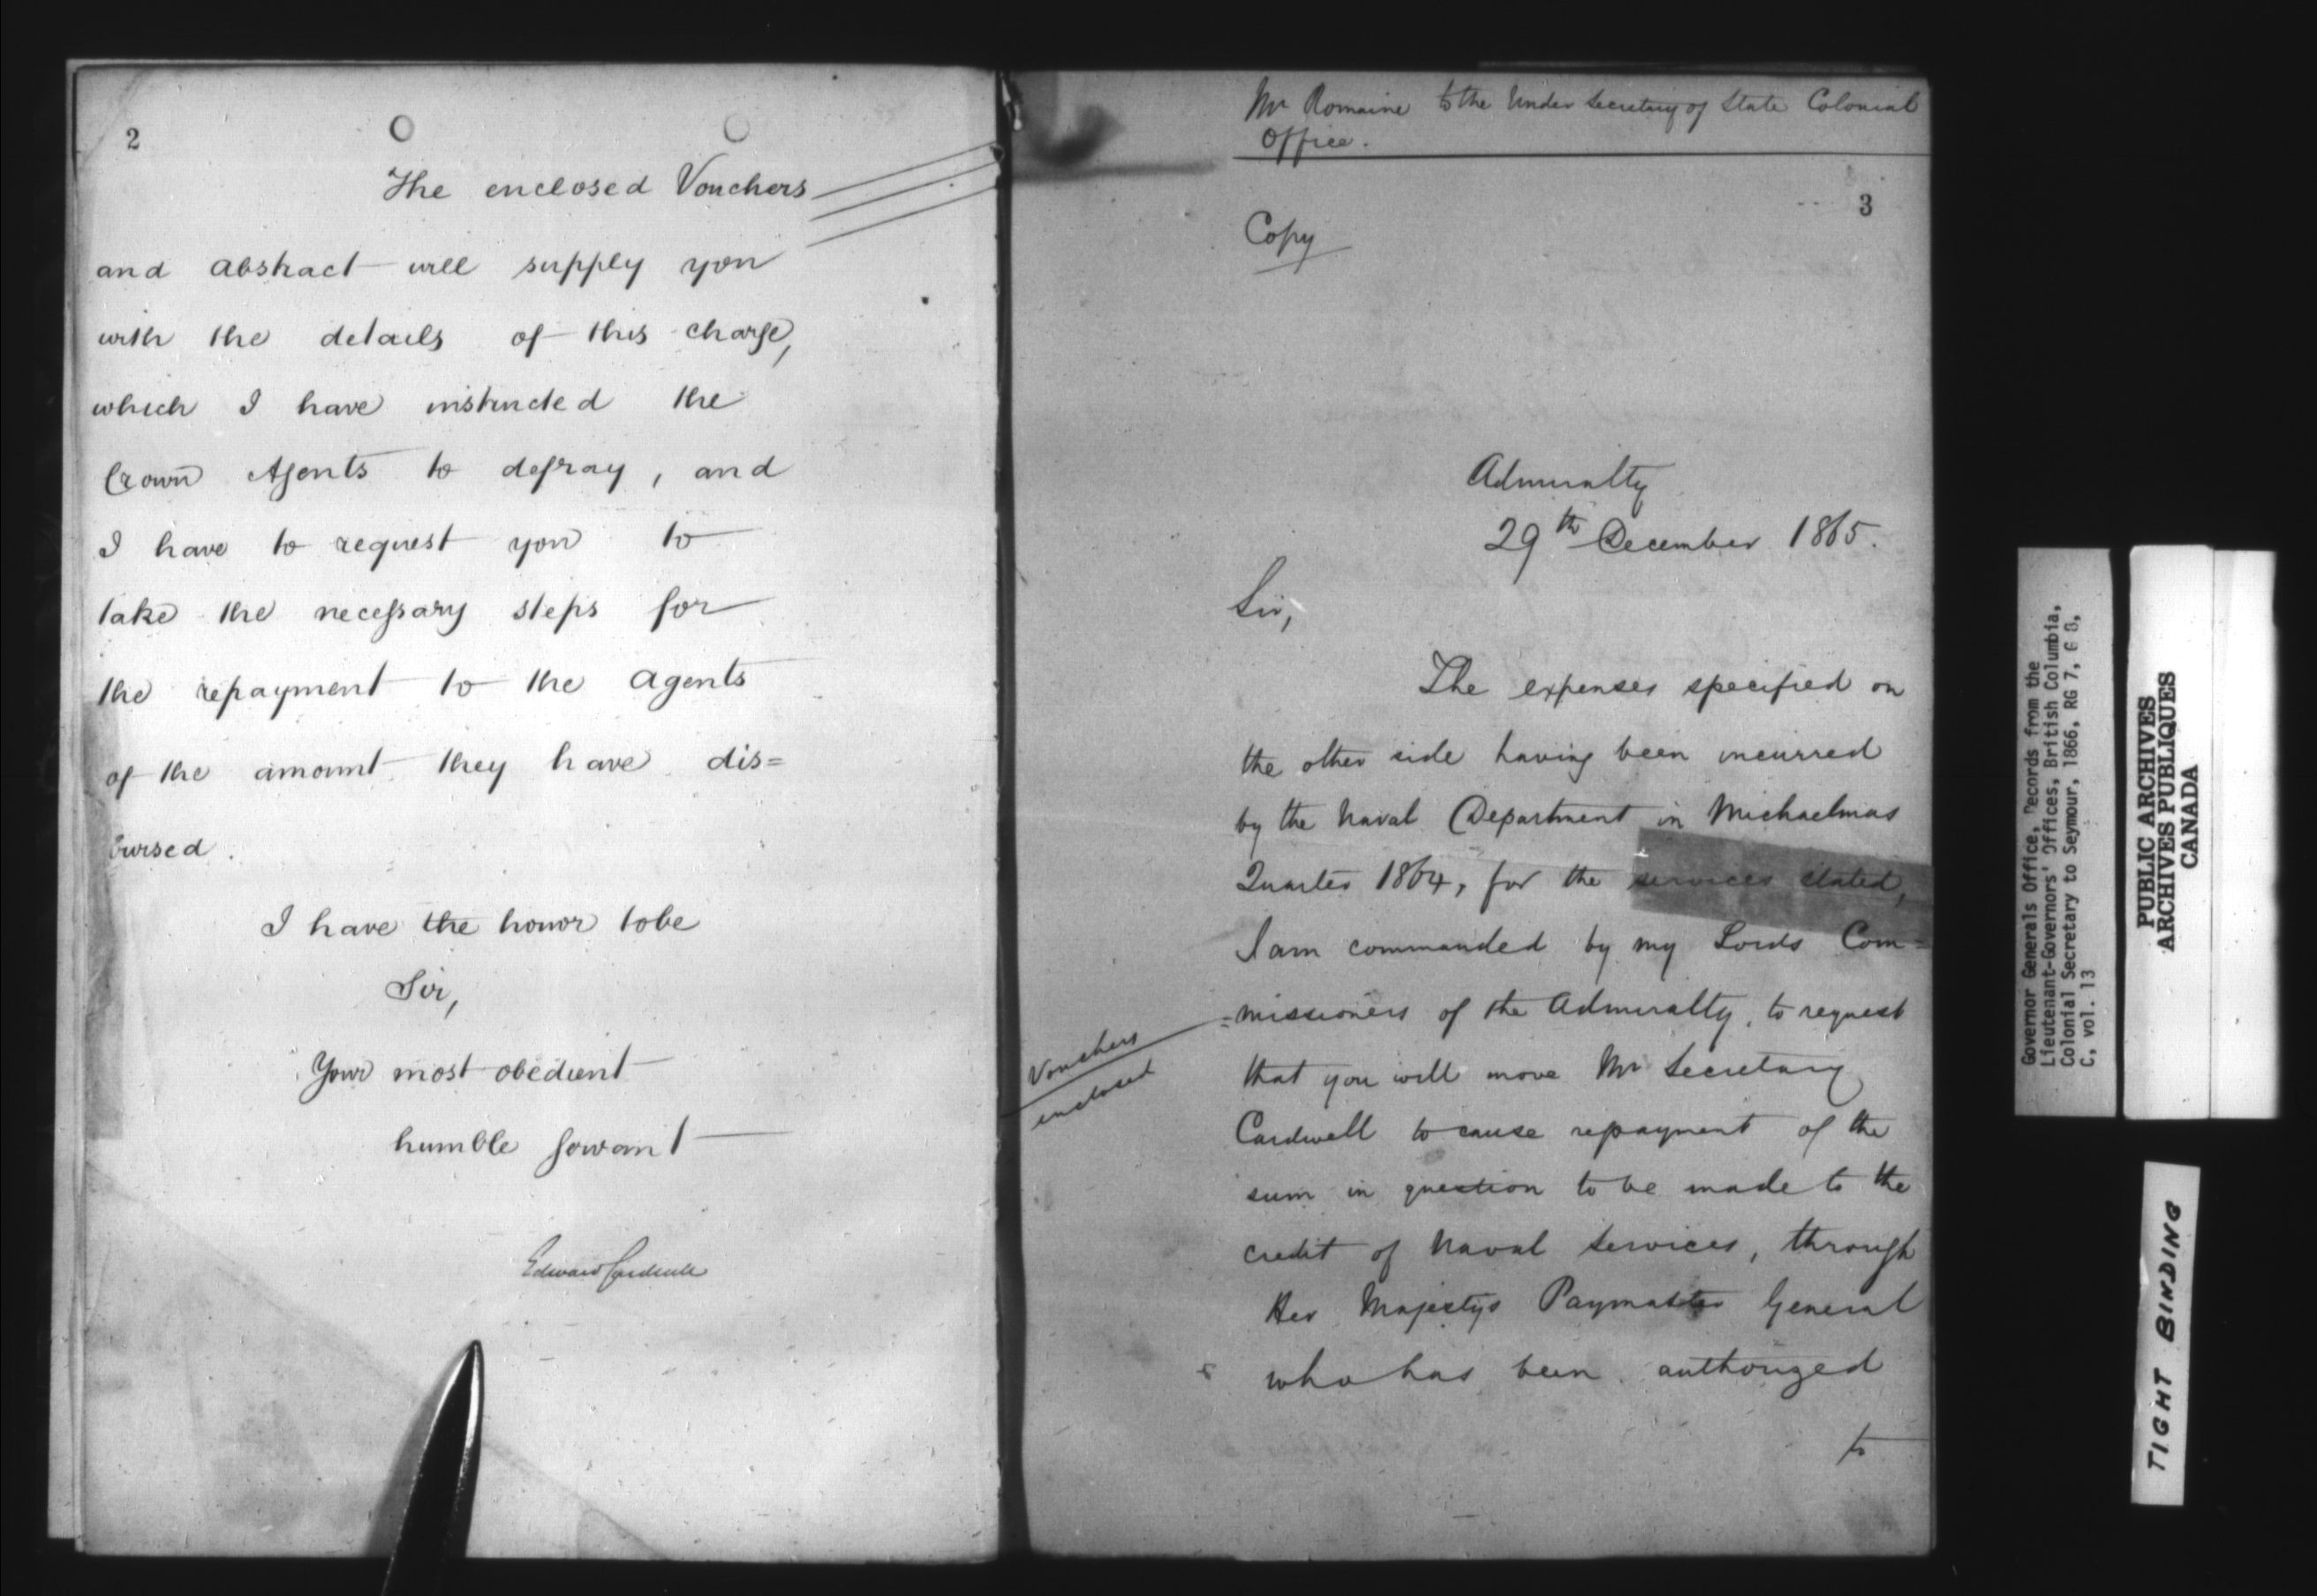 2
The enclosed Vouchers
and abstract will supply you
with the details of this charge,
which I have instructed the
Crown Agents to defray, and
I have to request you to
take the necessary steps for
the repayment to the Agents
of the amount they have dis=
bursed.
I have the honor to be
Sir,
Your most obedient
humble Servant
Edward Cardwell
Mr Romaine to the Under Secretary of State Colonial
Office.
3
Copy
Admiralty
29th December 1865.
Sir,
The expenses specified on
the other side having been incurred
by the Naval Department in Michaelmas
Quarter 1864, for the services stated,
I am commanded by my Lords Com=
=missioners of the Admiralty, to request
that you will move Mr Secretary
Cardwell to cause repayment of the
sum in question to be made to the
credit of Naval Services, through
Her Majestys Paymaster General
who has been authorized
to
Vouchers
enclosed
Governor Generals Office, Records from the
Lieutenant-Governors' Offices, British Columbia,
Colonial Secretary to Seymour, 1866, RG 7, G 8,
C, vol. 13
PUBLIC ARCHIVES
ARCHIVES PUBLIQUES
CANADA
TIGHT BINDING